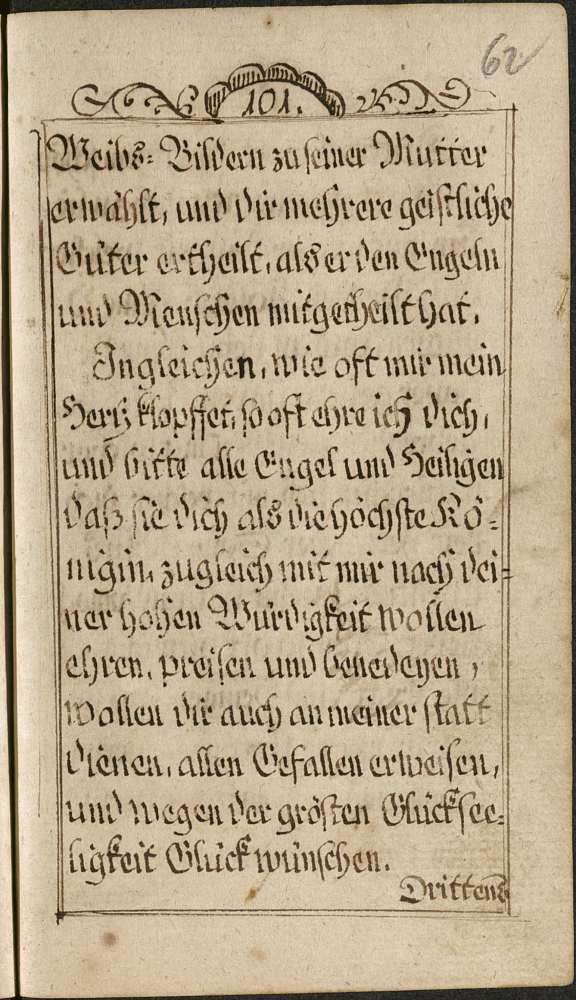 62
101.
Weibs-Bildern zu seiner Mutter
erwählt, und dir mehrere geistliche
Güter ertheilt, als er den Engeln
und Menschen mitgetheilt hat.
Ingleichen, wie oft mir mein
Hertz klopffet, so oft ehre ich dich,
und bitte alle Engel und Heiligen
daß sie dich als die höchste Kö-
nigin, zugleich mit mir nach dei-
ner hohen Würdigkeit wollen
ehren, preisen und benedeyen,
wollen dir auch an meiner statt
dienen, allen Gefallen erweisen,
und wegen der grösten Glücksee-
ligkeit Glück wünschen.
Drittens